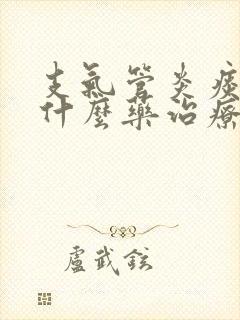 支氣管炎症
什麼藥治療
盧武鉉